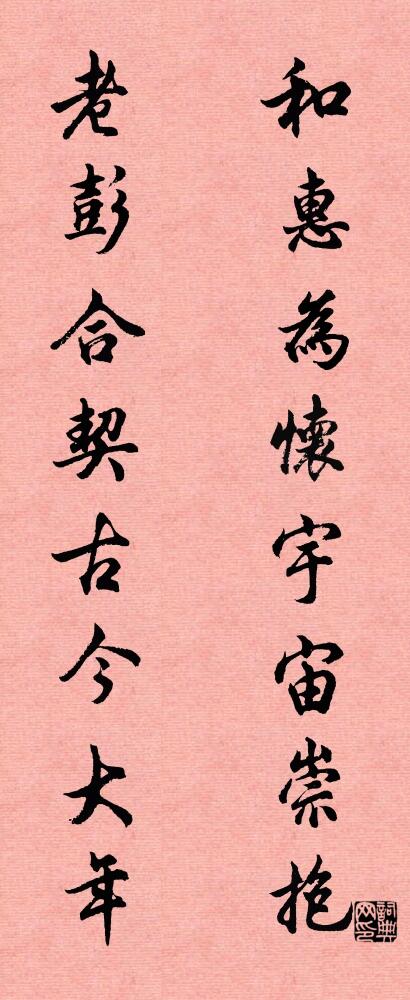 和惠為懷宇宙崇抱
老彭合契古今大年
詞典网印